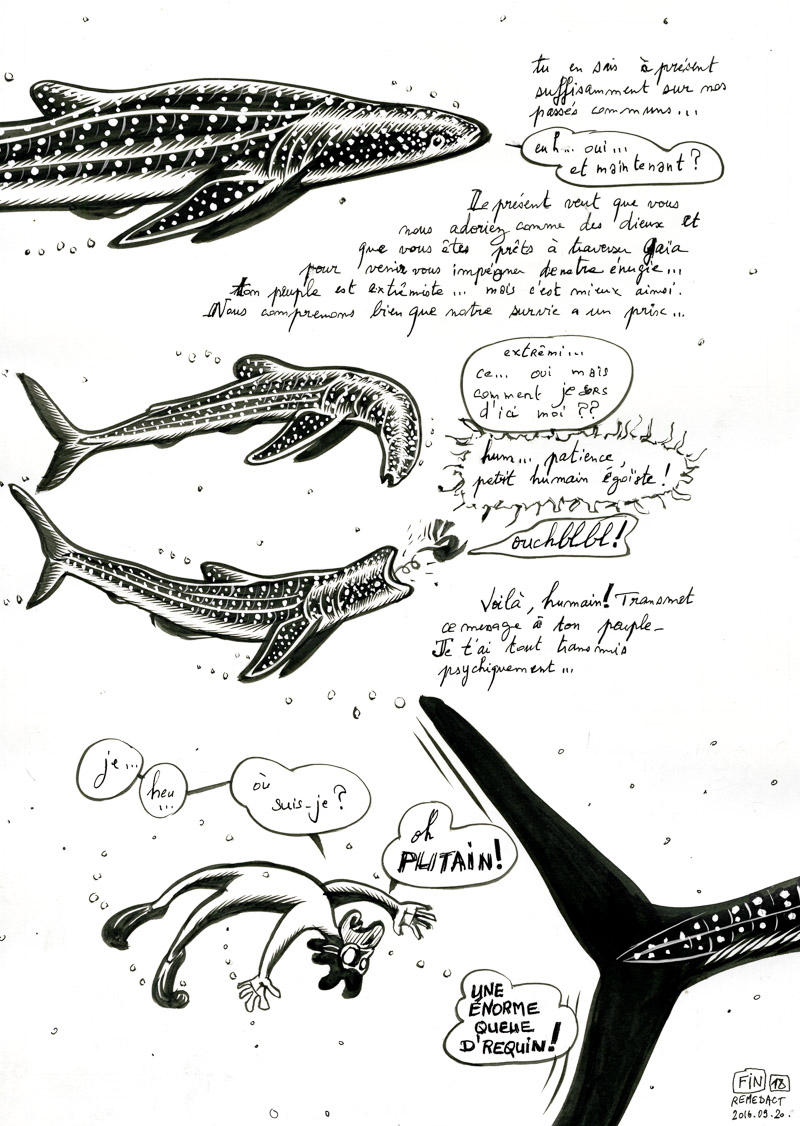 tu en sais à présent
suffisamment sur nos
passés communs...
euh... oui...
et maintenant ?
Le présent veut que vous
nous adoriez comme des dieux et
que vous êtes prêts à traverser Gaïa
pour venir vous imprégner de notre énergie...
ton peuple est extrêmiste... mais c'est mieux ainsi.
Nous comprenons bien que notre survie a un prix...
extrêmi...
ce... oui mais
comment je SORS
d'ici moi ??
hum... patience,
petit humain égoïste !
ouchblbl !
Voilà, humain! Transmet
ce message à ton peuple_
Je t'ai tout transmis
psychiquement...
je...
heu
...
où
suis-je ?
oh
PUTAIN!
UNE
ÉNORME
QUEUE
D'REQUIN!
FIN 18
REMEDACT
2016.09.20.